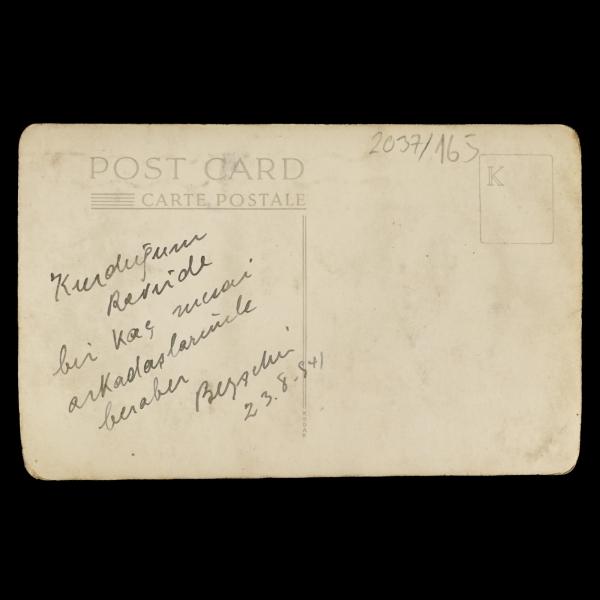 2037/165
POST CARD
CARTE POSTALE
K
Kurduğum
Revirde
bir kaç mesai
arkadaşlarımla
beraber
Beyşehir
23.8.941
KODAK